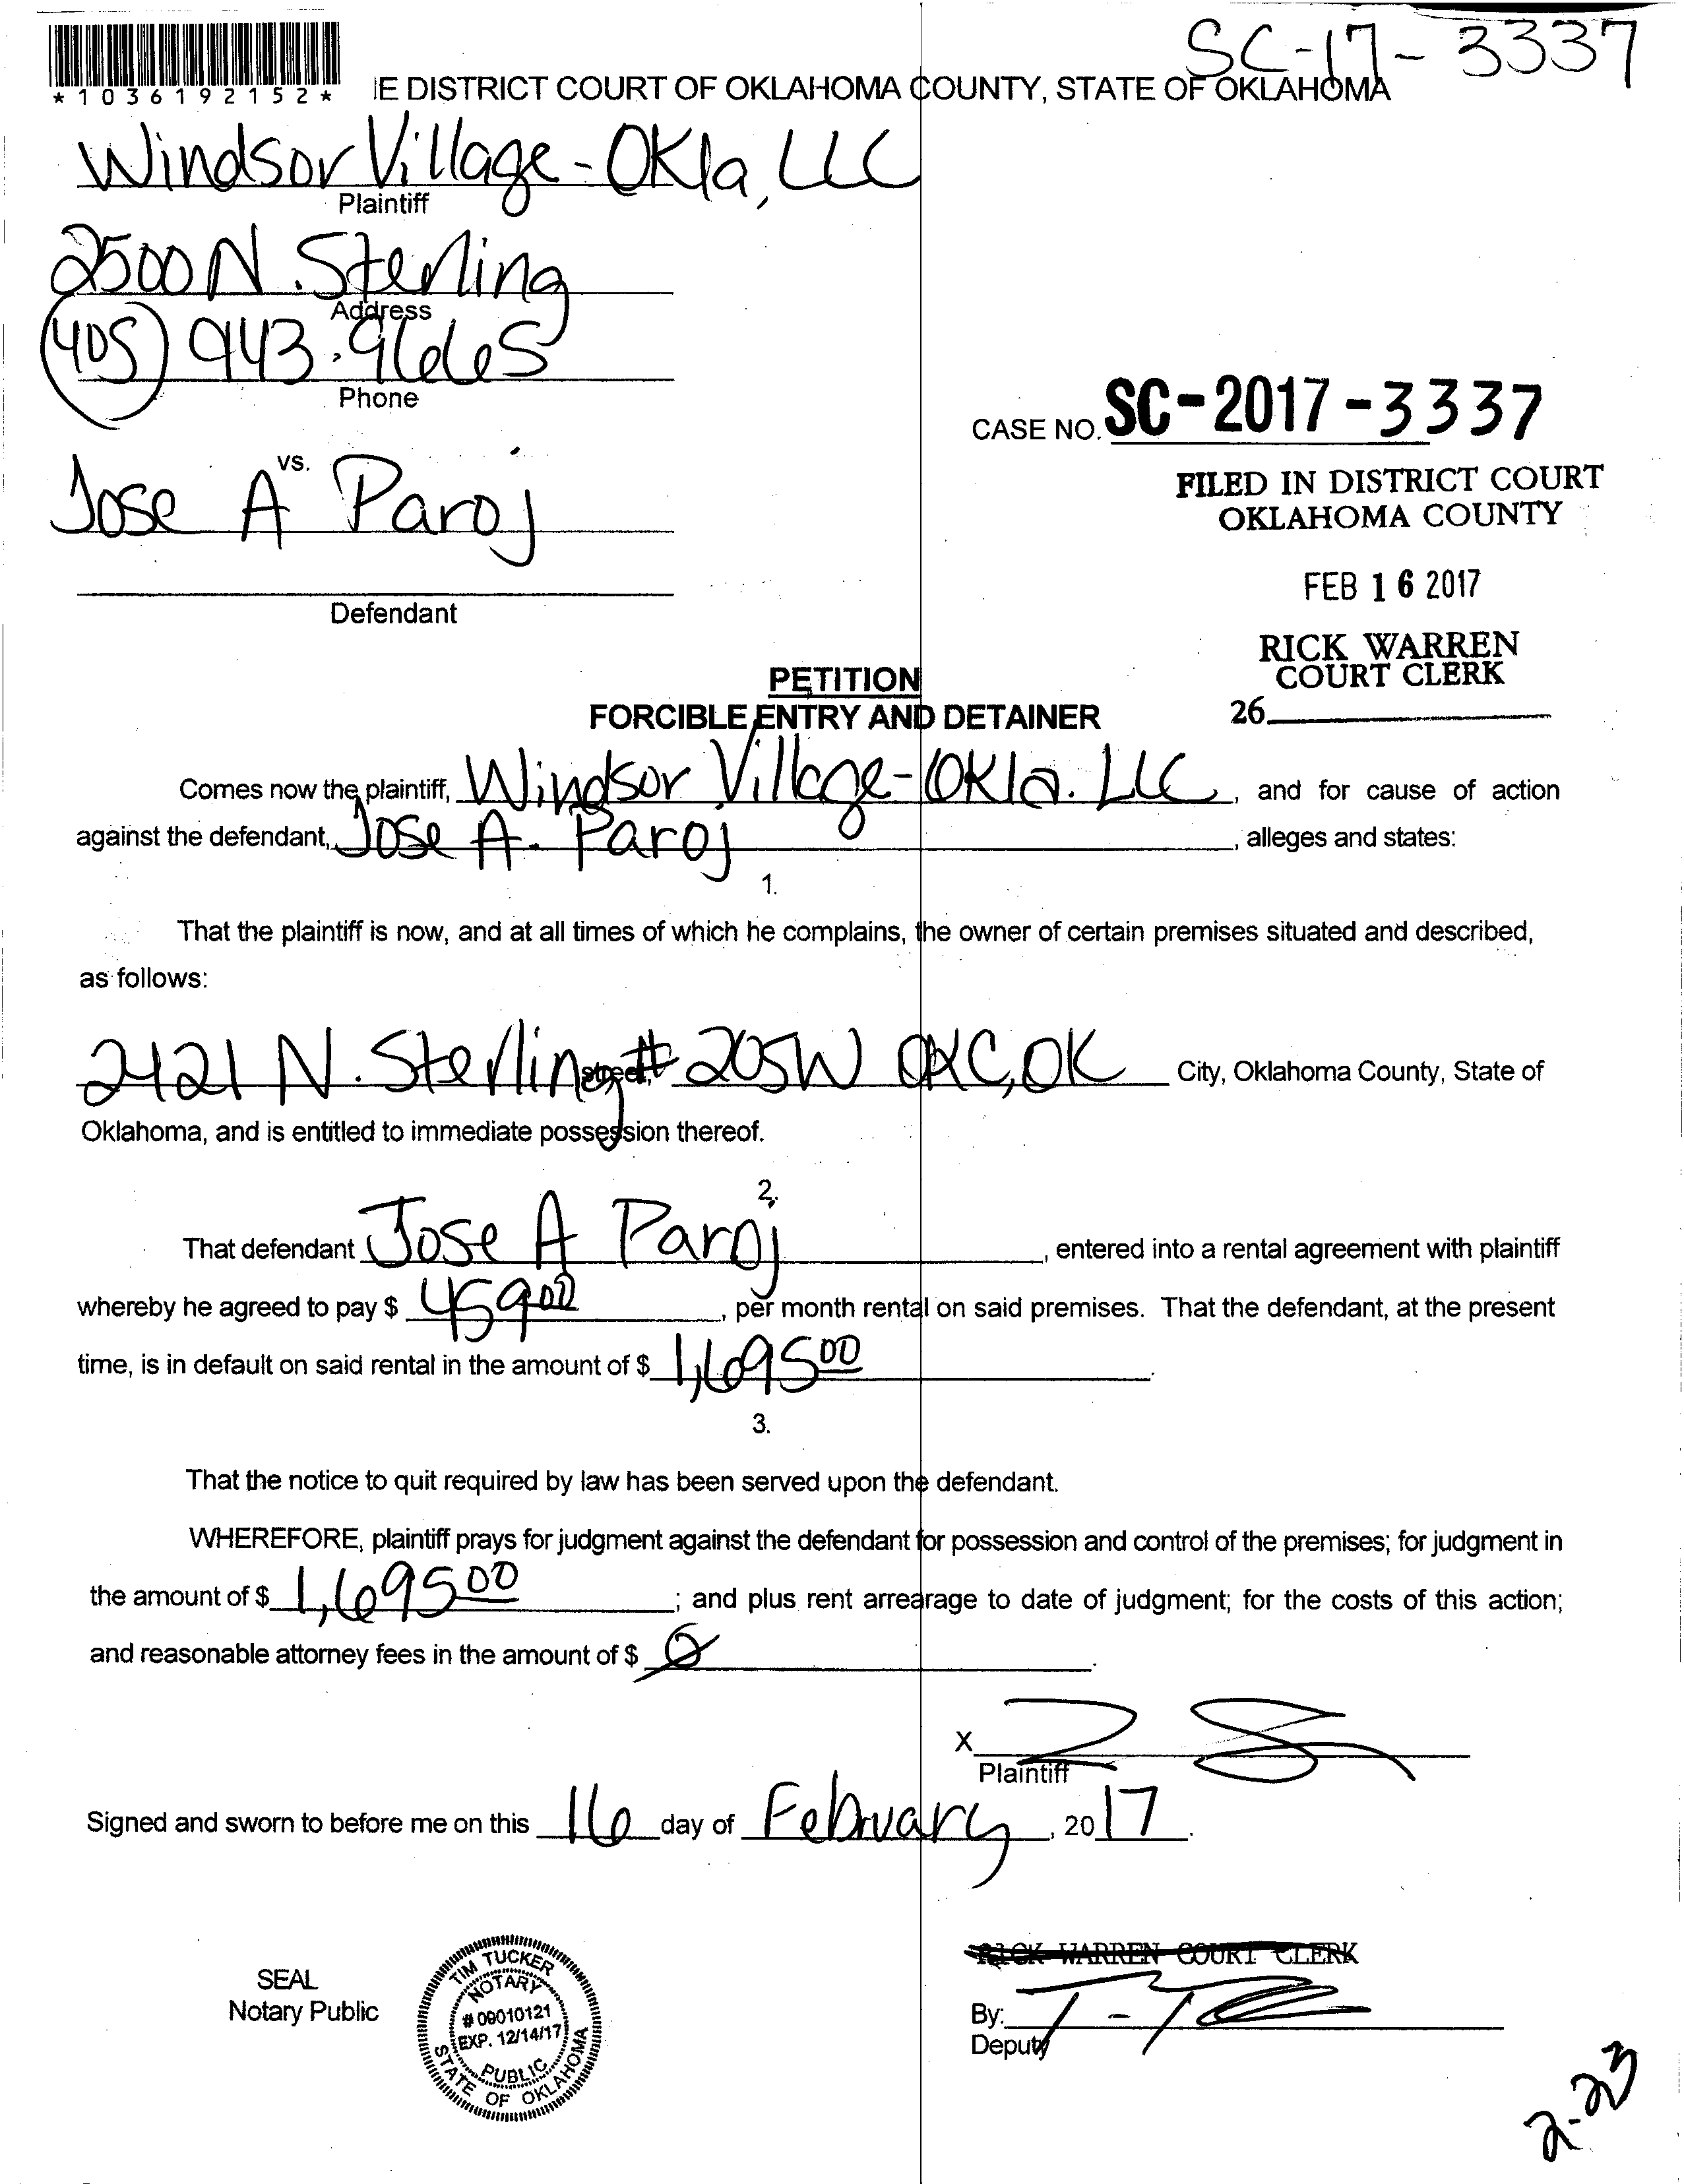 SC-17-3337
*1036192152*
IE DISTRICT COURT OF OKLAHOMA COUNTY, STATE OF OKLAHOMA
Windsor Village-OKla, LLC
Plaintiff
2500 N. Sterling
Address
(405) 943.9665
Phone
CASE NO. SC-2017-3337
vs.
Jose A Paroj
FILED IN DISTRICT COURT
OKLAHOMA COUNTY
FEB 16 2017
Defendant
RICK WARREN
COURT CLERK
26
PETITION
FORCIBLE ENTRY AND DETAINER
Comes now the plaintiff, Windsor Village-OKla. LLC, and for cause of action
against the defendant, Jose A. Paroj, alleges and states:
1.
That the plaintiff is now, and at all times of which he complains, the owner of certain premises situated and described,
as follows:
2421 N. Sterling street, # 205W OKC, OK City, Oklahoma County, State of
Oklahoma, and is entitled to immediate possession thereof.
2.
That defendant Jose A Paroj, entered into a rental agreement with plaintiff
whereby he agreed to pay $ 459 00, per month rental on said premises. That the defendant, at the present
time, is in default on said rental in the amount of $ 1,695 00.
3.
That the notice to quit required by law has been served upon the defendant.
WHEREFORE, plaintiff prays for judgment against the defendant for possession and control of the premises; for judgment in
the amount of $ 1,695 00; and plus rent arrearage to date of judgment; for the costs of this action;
and reasonable attorney fees in the amount of $ 0.
X
Plaintiff
Signed and sworn to before me on this 16 day of February, 2017.
SEAL
Notary Public
TIM TUCKER
NOTARY
# 09010121
EXP. 12/14/17
PUBLIC
STATE OF OKLAHOMA
RICK WARREN COURT CLERK
By:
Deputy
2-23